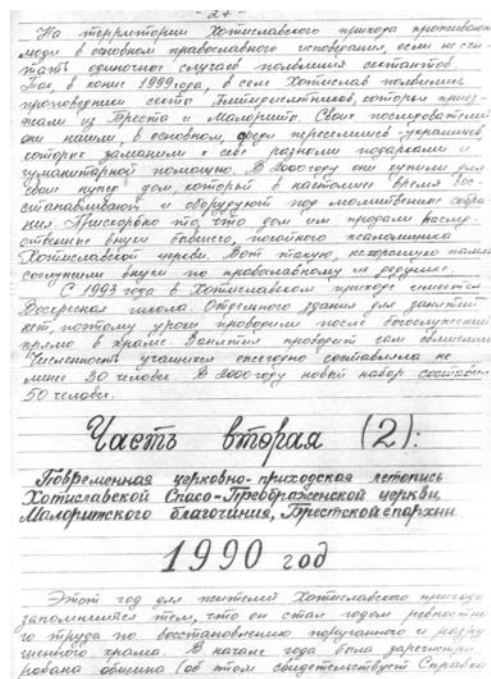 - 27 -
На территории Хотиславского прихода проживают
люди в основном православного исповедания, если не счи-
тать одиночных случаев появления сектантов.
Так, в конце 1999 года, в селе Хотислав появились
проповедники секты Пятидесятников, которые приез-
жали из Бреста и Малориты. Своих последователей
они нашли, в основном, среди переселенцев-украинцев,
которых заманили к себе разными подарками и
гуманитарной помощью. В 2000 году они купили для
своих нужд дом, который в настоящее время вос-
станавливают и оборудуют под молитвенные собра-
ния. Прискорбно то, что дом им продали наслед-
ственные внуки бывшего, покойного псаломщика
Хотиславской церкви. Вот такую, нехорошую память
сослужили внуки по православному их дедушке.
С 1993 года в Хотиславском приходе имеется
Воскресная школа. Отдельного здания для занятий
нет, поэтому уроки проводили после богослужений
прямо в храме. Занятия проводит сам священник
Численность учащихся ежегодно составляла не
менее 30 человек. В 2000 году новый набор составил
50 человек.
Часть вторая (2):
Повременная церковно-приходская летопись
Хотиславской Спасо-Преображенской церкви,
Малоритского благочиния, Брестской епархии
1990 год
Этот год для жителей Хотиславского прихода
запомнился тем, что он стал годом ревностно
го труда по восстановлению поруганного и разру
шенного храма. В начале года была зарегистри
рована община (об этом свидетельствует Справка